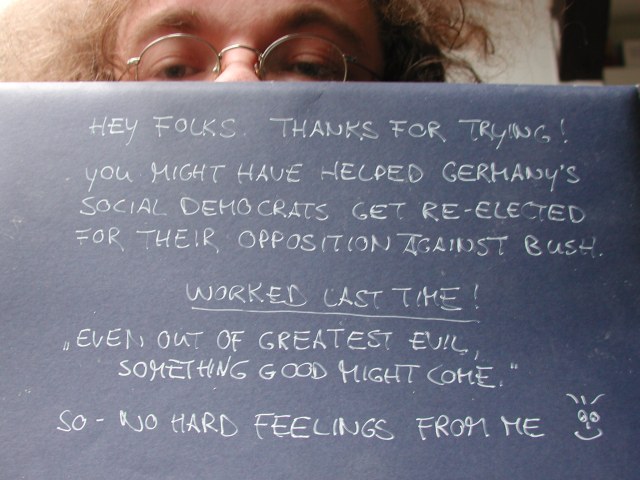 HEY FOLKS. THANKS FOR TRYING!
YOU MIGHT HAVE HELPED GERMANY'S
SOCIAL DEMOCRATS GET RE-ELECTED
FOR THEIR OPPOSITION AGAINST BUSH.
WORKED LAST TIME!
„EVEN OUT OF GREATEST EVIL,
SOMETHING GOOD MIGHT COME."
SO - NO HARD FEELINGS FROM ME